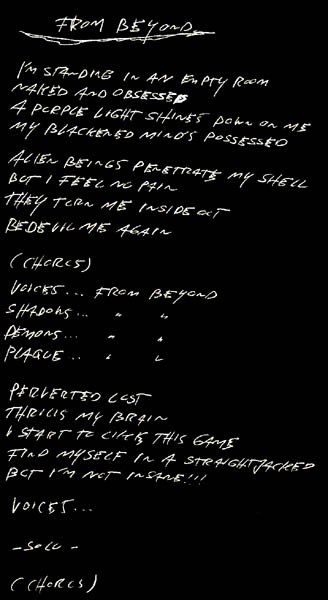 FROM BEYOND
I'M STANDING IN AN EMPTY ROOM
NAKED AND OBSESSED
A PURPLE LIGHT SHINES DOWN ON ME
MY BLACKENED MIND'S POSSESSED
ALIEN BEINGS PENETRATE MY SHELL
BUT I FEEL NO PAIN
THEY TURN ME INSIDE OUT
BEDEVIL ME AGAIN
(CHORUS)
VOICES... FROM BEYOND
SHADOWS... " "
DEMONS... " "
PLAGUE... " "
PERVERTED LUST
THRILLS MY BRAIN
I START TO LIKE THIS GAME
FIND MYSELF IN A STRAIGHTJACKED
BUT I'M NOT INSANE!!!
VOICES...
- SOLO -
(CHORUS)